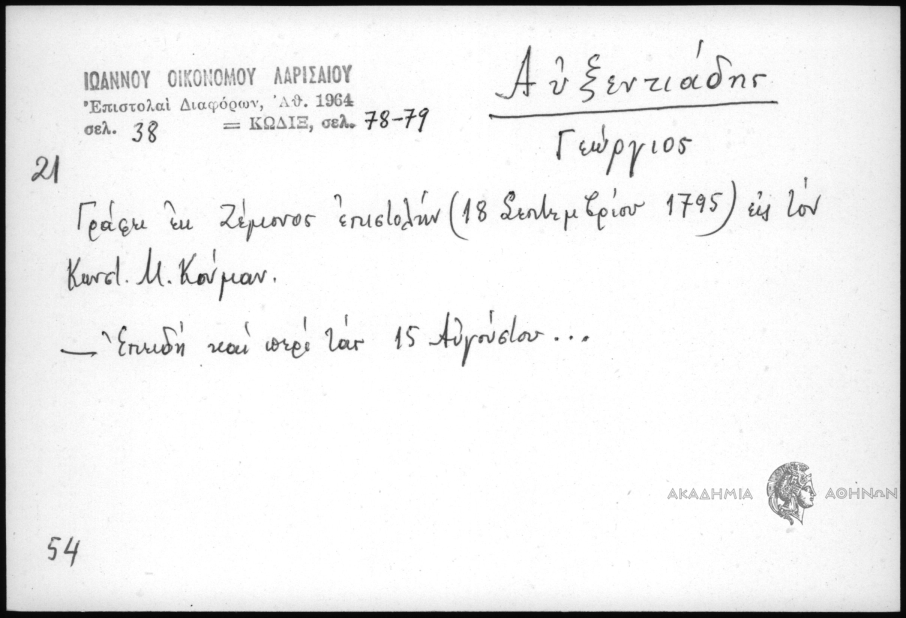 ΙΩΑΝΝΟΥ ΟΙΚΟΝΟΜΟΥ ΛΑΡΙΣΑΙΟΥ
Ἐπιστολαὶ Διαφόρων, Ἀθ. 1964
σελ. 38 = ΚΩΔΙΞ, σελ. 78-79
Αὐξεντιάδης
Γεώργιος
21
Γράφει ἐκ Ζέμονος ἐπιστολήν (18 Σεπτεμβρίου 1795) εἰς τὸν
Κωνστ. Μ. Κούμαν.
— Ἐπειδὴ καὶ περὶ τὰς 15 Αὐγούστου ...
ΑΚΑΔΗΜΙΑ ΑΘΗΝΩΝ
54